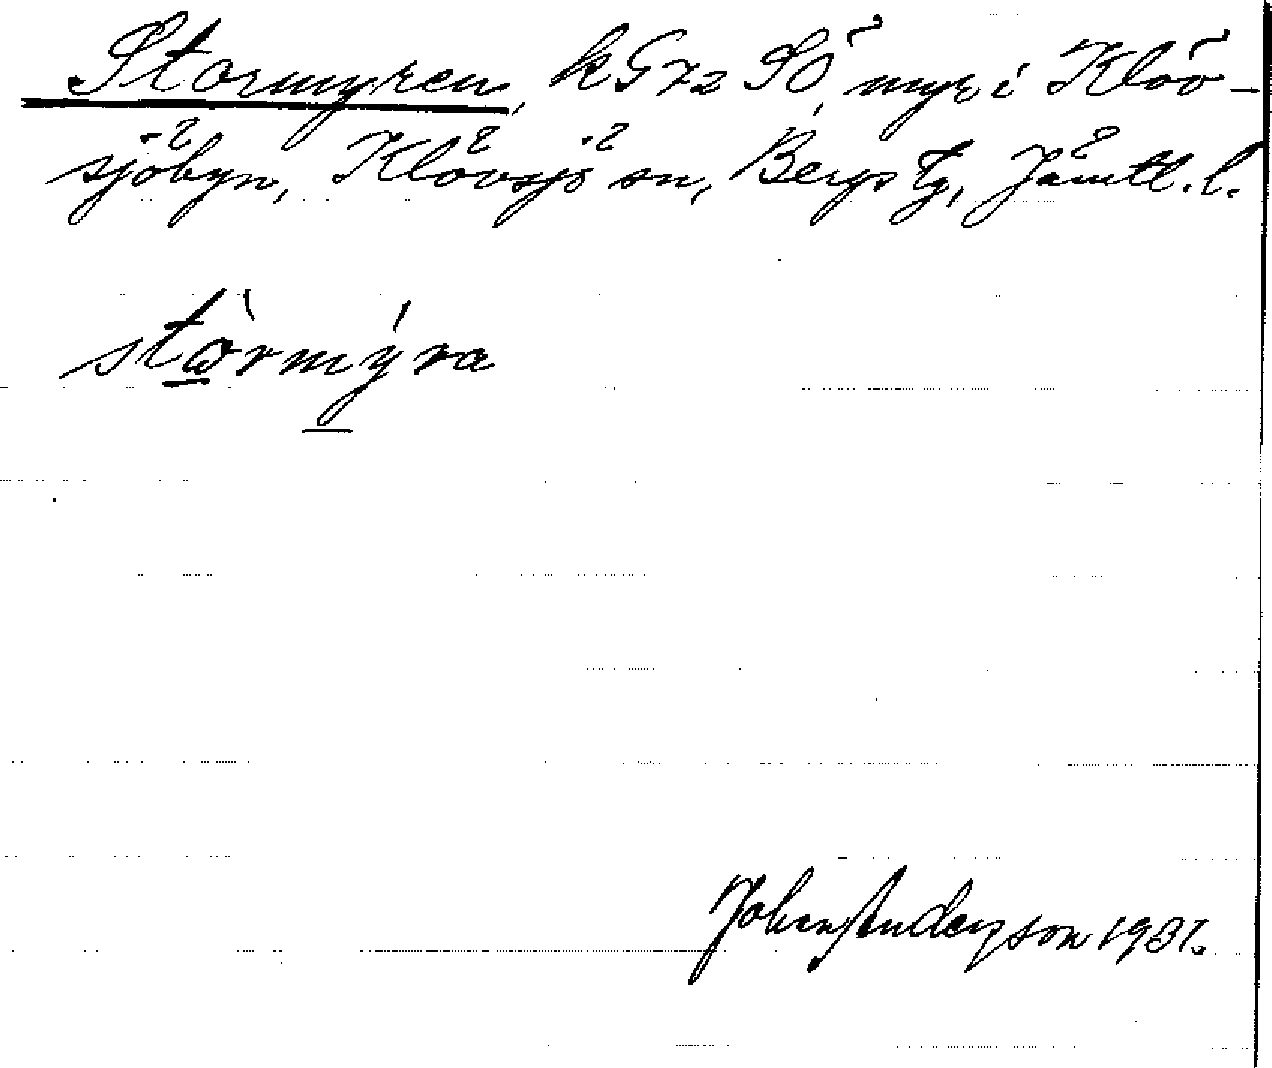 Stormyren, k G 72 SÖ, myr, i Klöv-
sjöbyn, Klövsjö sn, Bergs tg, Jämtl. l.
stòrmýra
Johan Anderson 1931.